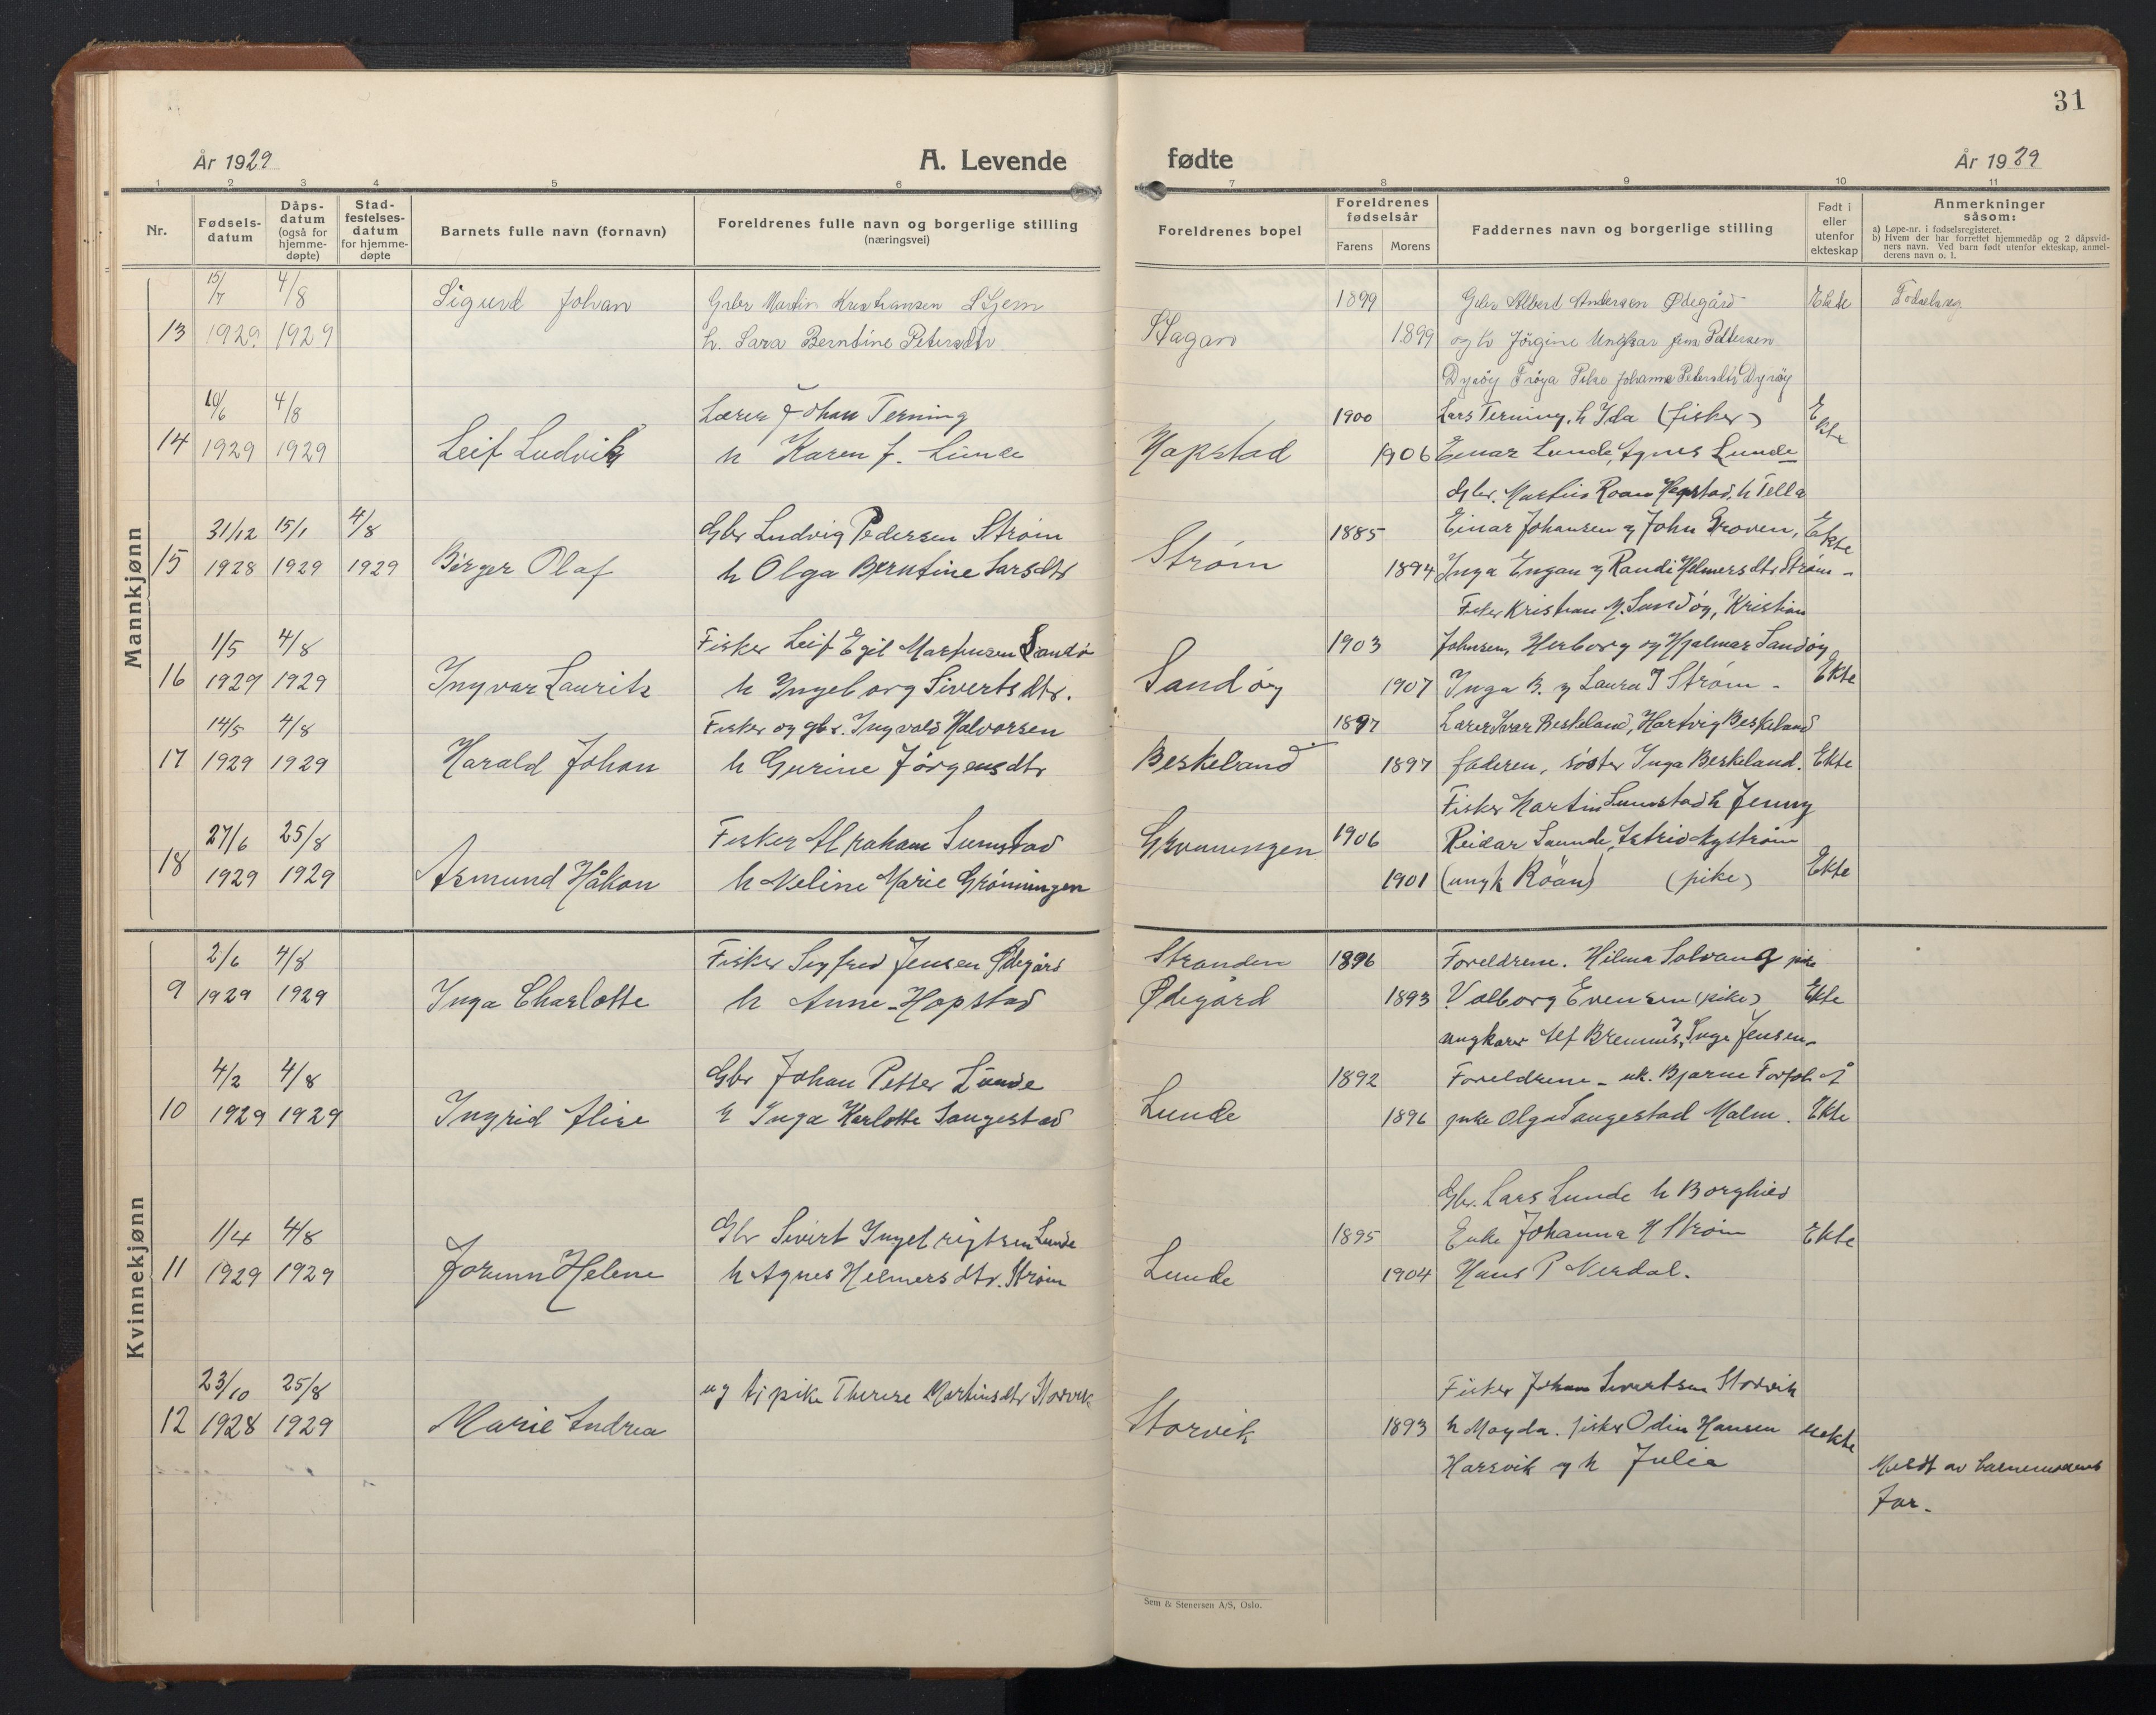 31
År 1929
A. Levende
fødte
År 1929
1 2 3 4 5 6 7 8 9 10 11
Nr.
Fødsels-
datum
Dåps-
datum
(også for
hjemme-
døpte)
Stad-
festelses-
datum
for hjemme-
døpte
Barnets fulle navn (fornavn)
Foreldrenes fulle navn og borgerlige stilling
(næringsvei)
Foreldrenes bopel
Foreldrenes
fødselsår
Farens Morens
Faddernes navn og borgerlige stilling
Født i
eller
utenfor
ekteskap
Anmerkninger
såsom:
a) Løpe-nr. i fødselsregisteret.
b) Hvem der har forrettet hjemmedåp og 2 dåpsvid-
ners navn. Ved barn født utenfor ekteskap, anmel-
derens navn o. l.
Mannkjønn
15/7 4/8 Sigurd Johan Gbr Martin Kristiansen 1899 Gbr Albert Andersen Ødegård Ekte
13 1929 1929 h. Sara Berntine Petersdtr Hagan 1899 og h Jörgine Ungkar Jens Pettersen
Dyröy Fröya Pike Johanna Petersdtr Dyröy
10/6 4/8 Lærer Johan Terning 1900 Lars Terning, h Ida (fisker) Ekte
14 1929 1929 Leif Ludvik h Karen J. Lunde Hopstad 1906 Einar Lunde, Agnes Lunde
Gbr. Martin Roan Hopstad, h Tella
31/12 15/1 4/8 Gbr Ludvig Pedersen Strøm 1885 Einar Johansen og John Groven, Ekte
15 1928 1929 1929 Birger Olaf h Olga Berntine Larsdtr Strøm 1894 Inga Engan og Randi Helmersdtr Strøm -
Fisker Kristian M. Sandøy, Kristian
1/5 4/8 Fisker Leif Egil Martinsen Sandø 1903 Johnsen, Herborg og Hjalmar Sandøy
16 1929 1929 Ingvar Laurits h Ingeborg Sivertsdtr. Sandøy 1907 Inga B. og Laura J Strøm - Ekte
14/5 4/8 Fisker og gbr. Ingvald Halvorsen 1897 Lærer Ivar Beskeland, Hartvig Beskeland
17 1929 1929 Harald Johan h Gurine Jørgensdtr Beskeland 1897 faderen, søster Inga Beskeland. Ekte
Fisker Martin Sumstad h Jenny
27/6 25/8 Fisker Abraham Sumstad 1906 Reidar Saunde, Astrid Nystrøm
18 1929 1929 Asmund Håkon h Veline Marie Grønningen Grønningen 1901 (ungk Roan) (pike) Ekte
Kvinnekjønn
2/6 4/8 Fisker Sigfred Jensen Ødegård Stranden 1896 Foreldrene. Hilma Solvang pike
9 1929 1929 Inga Charlotte h Anne Hopstad Ødegård 1893 Valborg Evensen (pike) Ekte
ungkarer Alf Bremnes, og Inge Jensen -
4/2 4/8 Gbr Johan Petter Lunde 1892 Foreldrene - uk. Bjarne
10 1929 1929 Ingrid Alise h Inga Karlotte Langestad Lunde 1896 pike Olga Langestad Malm. Ekte
Gbr. Lars Lunde h Borghild
1/4 4/8 Gbr Sivert Ingebrigtsen Lunde 1895 Enke Johanna H Strøm Ekte
11 1929 1929 Jorunn Helene h Agnes Helmersdtr. Strøm Lunde 1904 Hans P Verdal.
23/10 25/8 ug tj pike Therese Martinsdtr Storvik Fisker Johan Sivertsen Storvik
12 1928 1929 Marie Andrea Storvik 1893 h Magda. fisker Odin Hansen uekte
Harsvik og h Julie Meldt av barnemorens
far -
Sem & Stenersen A/S, Oslo.